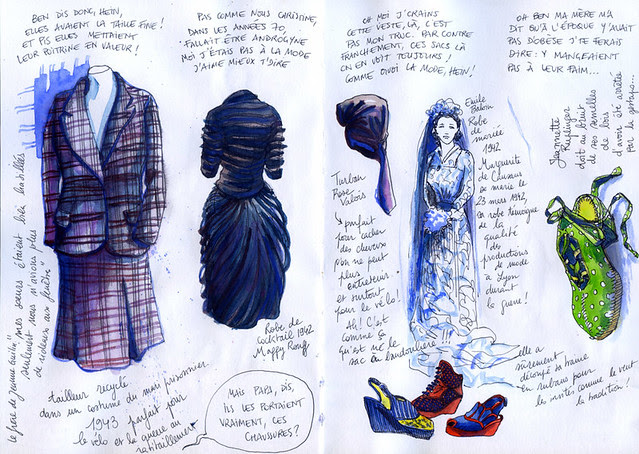 BEN DIS DONC, HEIN,
ELLES AVAIENT LA TAILLE FINE !
ET PIS ELLES METTAIENT
LEUR POITRINE EN VALEUR !
PAS COMME NOUS CHRISTINE,
DANS LES ANNÉES 70,
FALLAIT ÊTRE ANDROGYNE
MOI J'ÉTAIS PAS À LA MODE
J'AIME MIEUX T'DIRE
OH MOI J'CRAINS
CETTE VESTE, LÀ, C'EST
PAS MON TRUC. PAR CONTRE
FRANCHEMENT, CES SACS LÀ
ON EN VOIT TOUJOURS !
COMME QUOI LA MODE, HEIN !
OH BEN MA MÈRE M'A
DIT QU'À L'ÉPOQUE Y'AVAIT
PAS D'OBÈSE J'TE FERAIS
DIRE : Y MANGEAIENT
PAS À LEUR FAIM...
mes sœurs étaient bien habillées
seulement nous n'avions plus
de rideaux aux fenêtres"
tailleur recyclé
dans un costume du mari prisonnier
1943 parfait pour
le vélo et la queue au
ravitaillement
Robe de
cocktail 1942
Maggy Rouff
MAIS PAPA, DIS,
ILS LES PORTAIENT
VRAIMENT, CES
CHAUSSURES ?
Turban
Rose
Valois
parfait
pour cacher
des cheveux
qu'on ne peut
plus
entretenir
et surtout
pour le vélo !
Ah ! C'est
comme ça
qu'est né le
sac en bandoulière
Robe
de mariée
1942
Marguerite
de
se marie le
23 mars 1942,
sa robe témoigne
de la
qualité
des
productions
de mode
à Lyon
durant
la guerre !
elle a
sûrement
découpé sa traine
en rubans pour
les invités comme le veut
la tradition !
Jeannette
doit au bruit
de ses semelles
de bois
d'avoir été arrêtée
par la gestapo